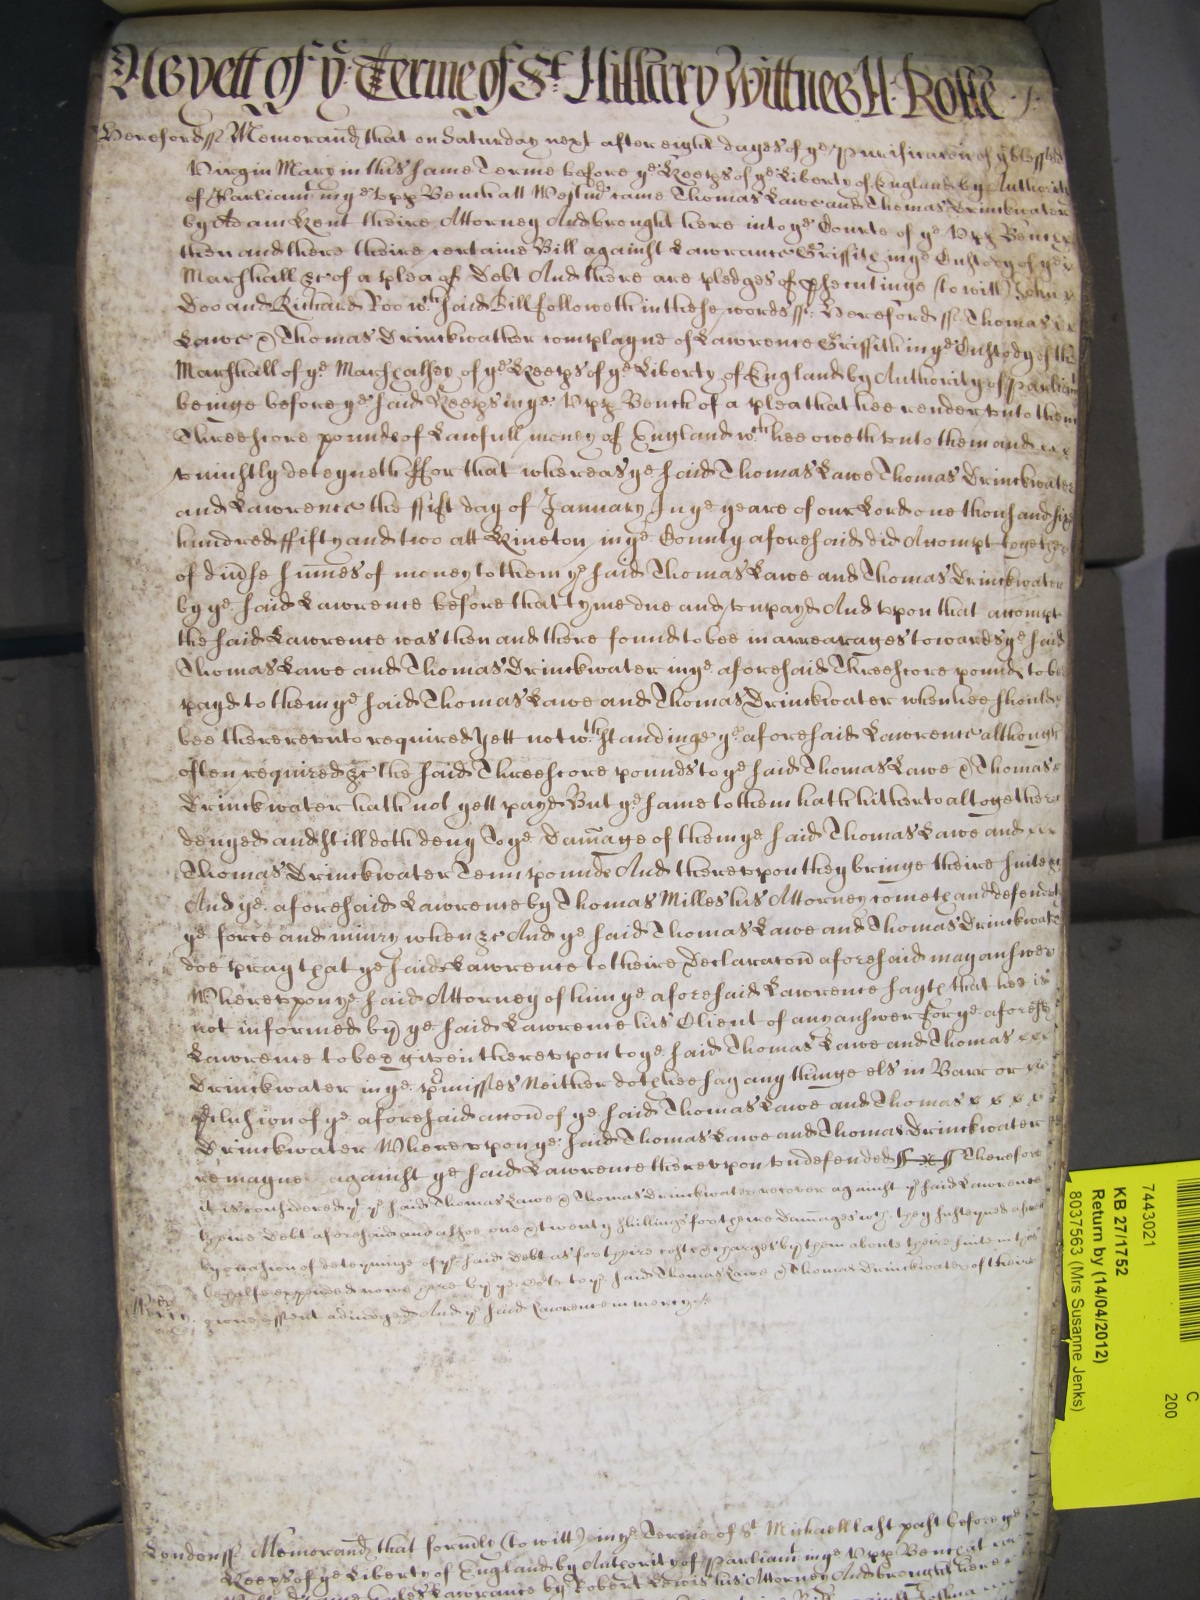 As yett of ye Terme of St Hillary Wittnes H: Rolle
Hereford ss Memorand that on Saturday next after eight dayes of ye Purificacon of ye blessed
Virgin Mary in this same Terme before ye Keeps of ye Liberty of England by Authority
of Parliamt in ye upp Bench att Westmr came Thomas Lawe and Thomas Drinckwater
by Adam Kent theire Attorney And brought here into ye Courte of ye upp Bench
then and there theire certaine Bill against Lawrance Griffith in ye Custody of ye
Marshall &c of a plea of Debt And there are pledges of psecutinge (to witt) John
Doo and Richard Roo wch said Bill followeth in these words ss: Hereford ss Thomas
Lawe & Thomas Drinckwather complayne of Lawrence Griffith in ye Custody of the
Marshall of ye Marchalsey of ye Keeps of ye Liberty of England by Authority of Parliamt
beinge before ye said Keeps in ye upp Bench of a plea that hee render unto them
Threescore pounds of Lawfull money of England wch hee oweth unto them and
uniustly deteyneth ffor that whereas ye said Thomas Lawe Thomas Drinckwater
and Lawrence the ffift day of January In ye yeare of our Lord one thousand six
hundred ffifty and two att Kineton in ye County aforesaid did Accompt together
of divse summes of money to them ye said Thomas Lawe and Thomas Drinckwater
by ye said Lawrence before that tyme due and unpayd And uppon that accompt
the said Lawrence was then and there found to bee in arrearages towards ye said
Thomas Lawe and Thomas Drinckwater in ye aforesaid Threescore pounds to be
payd to them ye said Thomas Lawe and Thomas Drinckwater when hee should
bee thereunto required Yett notwthstandinge ye aforesaid Lawrence although
often required &c the said Threescore pounds to ye said Thomas Lawe & Thomas
Drinckwater hath not yett payd But ye same to them hath hitherto altogether
denyed and still doth deny To ye Damage of them ye said Thomas Lawe and
Thomas Drinckwater Tenn pounds And thereuppon they bringe theire suite &c
And ye aforesaid Lawrence by Thomas Milles his Attorney cometh and defendeth
ye force and iniury when &c And ye said Thomas Lawe and Thomas Drinckwater
doe pray that ye said Lawrence to theire Declaracon aforesaid may answer
Whereuppon ye said Attorney of him ye aforesaid Lawrence sayth that hee is
not informed by ye said Lawrence his Client of any answer for ye aforesd
Lawrence to bee given thereuppon to ye said Thomas Lawe and Thomas
Drinckwater in ye pmisses Neither doth hee say any thinge els in Barr or
pclusion of ye aforesaid accon of ye said Thomas Lawe and Thomas
Drinckwater Whereuppon ye said Thomas Lawe and Thomas Drinckwater
remayne against ye said Lawrence thereuppon undefended Therefore
it is considered yt ye said Thomas Lawe & Thomas Drinckwater recover against ye said Lawrence
theire Debt aforesaid and alsoe one & twenty shillings for theire Damages wch they susteyned
by occasion of deteyninge of ye said Debt as for theire costs & charges by them aboute theire suite in this
behalfe expended nowe here by ye Cort to ye said Thomas Lawe & Thomas Drinckwater of theire
assent adiudged And ye said Lawrence in mercy &c
London ss Memorand that formly (to witt) in ye Terme of St Michaell last past before ye
Keeps of ye Liberty of England by Authority of Parliamt in ye upp Bench at
Lawrance by Robert Lewis his Attorney And brought here
7443021
KB 27/1752
Return by (14/04/2012)
8037563 (Mrs Susanne Jenks)
C
200